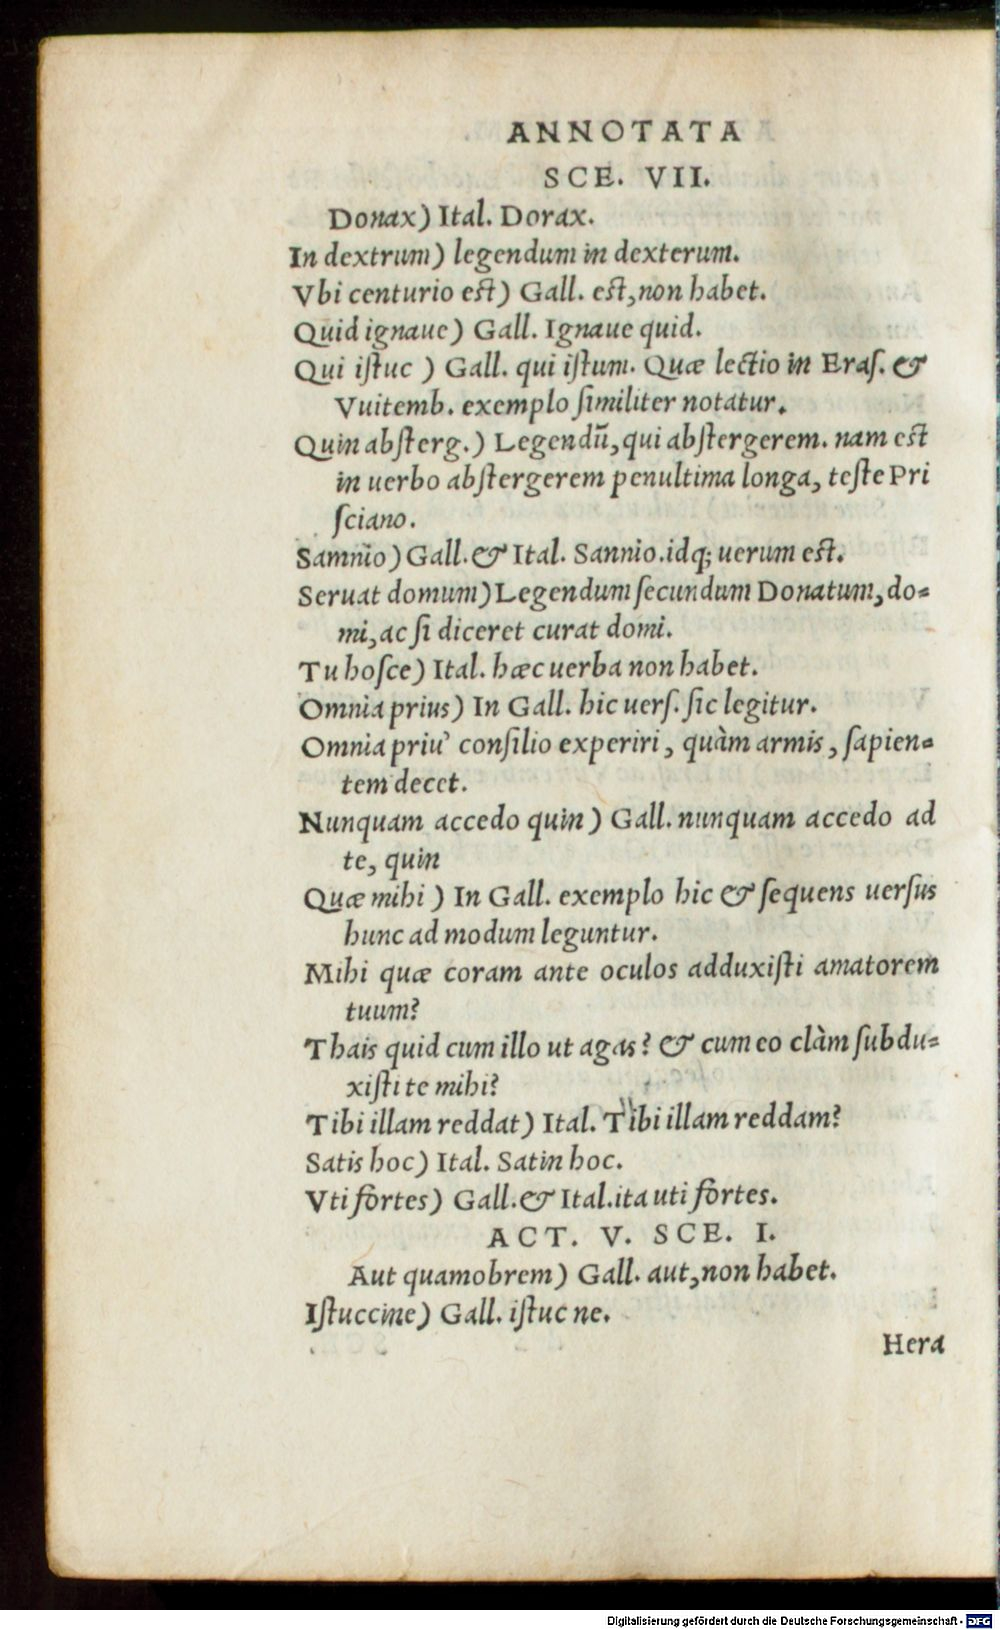 ANNOTATA
SCE. VII.
Donax) Ital. Dorax.
In dextrum) legendum in dexterum.
Vbi centurio est) Gall. est, non habet.
Quid ignaue) Gall. Ignaue quid.
Qui iſtuc ) Gall. qui iſtum. Quæ lectio in Eraſ. &
Vuitemb. exemplo ſimiliter notatur.
Quin abſterg.) Legendū, qui abſtergerem. nam est
in uerbo abſtergerem penultima longa, teſte Pri
ſciano.
Samnio) Gall. & Ital. Sannio. idq; uerum est.
Seruat domum) Legendum ſecundum Donatum, do-
mi, ac ſi diceret curat domi.
Tu hoſce) Ital. hæc uerba non habet.
Omnia prius) In Gall. hic uerſ. ſic legitur.
Omnia priu' conſilio experiri, quàm armis, ſapien-
tem decet.
Nunquam accedo quin) Gall. nunquam accedo ad
te, quin
Quæ mihi) In Gall. exemplo hic & ſequens uerſus
hunc ad modum leguntur.
Mihi quæ coram ante oculos adduxiſti amatorem
tuum?
Thais quid cum illo ut agas? & cum eo clàm ſubdu-
xiſti te mihi?
Tibi illam reddat) Ital. Tibi illam reddam?
Satis hoc) Ital. Satin hoc.
Vti fortes) Gall. & Ital. ita uti fortes.
ACT. V. SCE. I.
Aut quamobrem) Gall. aut, non habet.
Iſtuccine) Gall. iſtuc ne.
Hera
Digitalisierung gefördert durch die Deutsche Forschungsgemeinschaft - DFG